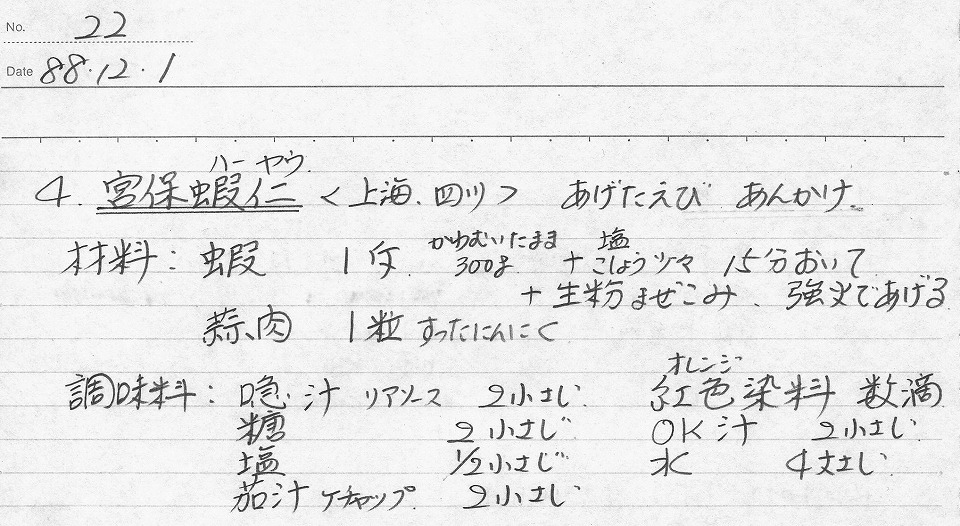 No. 22
Date 88.12.1
ハー ヤウ
4. 宮保蝦仁 <上海、四川> あげたえび あんかけ
材料: 蝦 1斤 かわむいたまま 300g + 塩 こしょう少々 15分おいて
+ 生粉まぜこみ、強火であげる
蒜肉 1粒 すったにんにく
オレンジ
調味料: 喼汁 リアソース 2小さじ 紅色染料 数滴
糖 2小さじ OK汁 2小さじ
塩 1/2小さじ 水 4大さじ
茄汁 ケチャップ 2小さじ